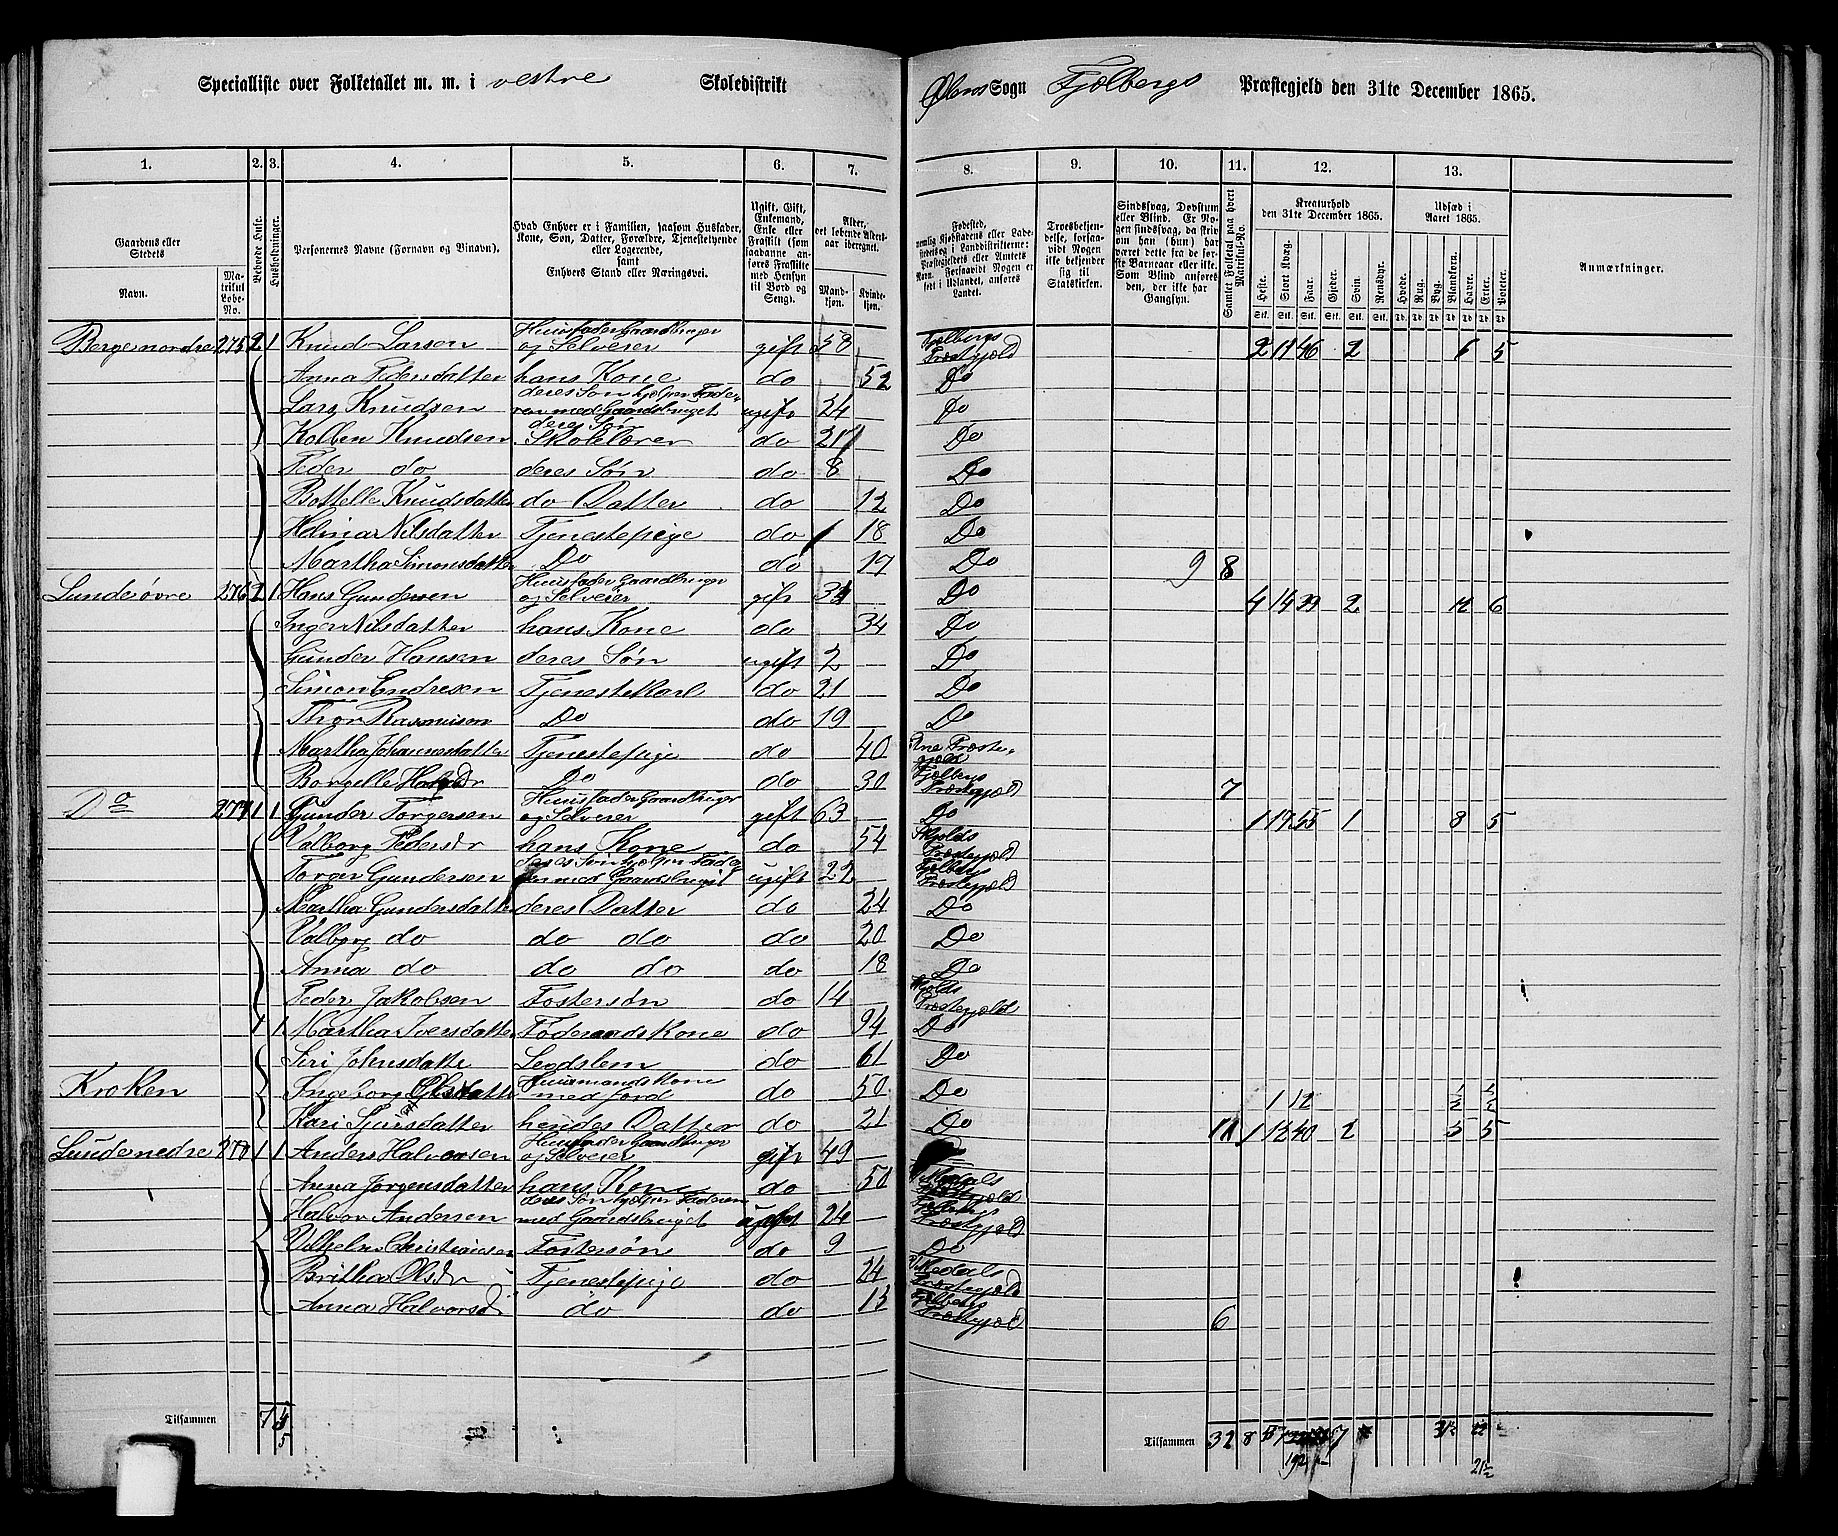 Specialliste over Folketallet m. m. i vestre Skoledistrikt Ølens Sogn Fjelbergs Præstegjeld den 31te December 1865.
1. 2. 3. 4. 5. 6. 7. 8. 9. 10. 11. 12. 13.
Gaardens eller Stedets Navn. Matrikul Løbe-No. Beboede Huse. Husholdninger. Personernes Navne (Fornavn og Tilnavn). Hvad Enhver er i Familien, saasom Husfader, Kone, Søn, Datter, Forældre, Tjenestetyende eller Logerende, samt Enhvers Stand eller Næringsvei. Ugift, Gift, Enkemand, Enke eller Fraskilt (saadanne anføres Fraskilte med Hensyn til Bord og Seng). Alder, det løbende Aldersaar iberegnet. Mandkjøn. Kvindekjøn.
Fødested, Troesbekjendelse, forsaavidt Nogen ikke bekjender sig til Statskirken. Sindssvag, Døvstum eller Blind. Samlet Folketal paa hvert Matrikul-No. Kreaturhold den 31te December 1865. Udsæd i Aaret 1865. Anmærkninger.
Heste. Stort Kvæg. Faar. Gjeder. Sviin. Rensdyr. Hvede. Rug. Byg. Blandkorn. Havre. Erter. Poteter.
Berge nordre 275 2 1 Knud Larsen Huusfader Gaardbruger og Selveier gift 58 Fjelbergs Præstegjeld 2 11 46 2 6 5
Anna Pedersdatter hans Kone do 52 Do
Lars Knudsen deres Søn hjelper Faderen med Gaardsbruget ugift 24 Do
Kolben Knudsen deres Søn Skolelærer do 21 Do
Peder do deres Søn do 8 Do
Bottelle Knudsdatter do Datter do 12 Do
Helina Nilsdatter Tjenestepige do 18 Do
Martha Simonsdatter Do do 17 Do 9 8
Lunde øvre 276 2 1 Hans Gundersen Huusfader Gaardbruger og Selveier gift 34 Do 4 14 39 2 12 6
Inger Nilsdatter hans Kone do 34 Do
Gunder Hansen deres Søn ugift 2 Do
Simon Endresen Tjenestekarl do 21 Do
Thor Rasmusson Do do 19 Do
Martha Johannesdatter Tjenestepige do 40 Præstegjeld
Borgelle Do do 30 Fjelbergs Præstegjeld 7
Do 277 1 1 Gunder Torgersen Huusfader Gaardbruger og Selveier gift 63 Do 1 17 55 1 8 5
Valborg Pedersdr hans Kone do 54 Skjolds Præstegjeld
Torger Gundersen deres Søn hjelper Faderen med Gaardsbruget ugift 22 Fjelbergs Præstegjeld
Martha Gundersdatter deres Datter do 24 Do
Valborg do do do do 20 Do
Anna do do do do 18 Do
Peder Jakobsen Fostersøn do 14 Skjolds Præstegjeld
1 1 Martha Iversdatter Føderaads Kone do 94 Do
Siri Johnsdatte Legdslem do 61 Do
Kroken Ingeborg Olsdatter Huusmands Kone med Jord do 50 Do 1 12 ½ ½
Kari Sjursdatter hendes Datter do 21 Do 11 1 12 40 2 5 5
Lunde nedre 278 1 1 Anders Halvorsen Huusfader Gaardbruger og Selveier gift 49
Anna Jørgensdatter hans Kone do 50 Præstegjeld
Halvor Andersen deres Søn hjelper Faderen med Gaardsbruget ugift 24 Fjelbergs Præstegjeld
Vilhelm Christiansen Fostersøn do 9 Do
Britha Olsdr Tjenestepige do 24 Præstegjeld
Anna Halvorsd do do 13 Fjelbergs Præstegjeld 6
Tilsammen 7 5 Tilsammen 32 8 7 31½
192 21½